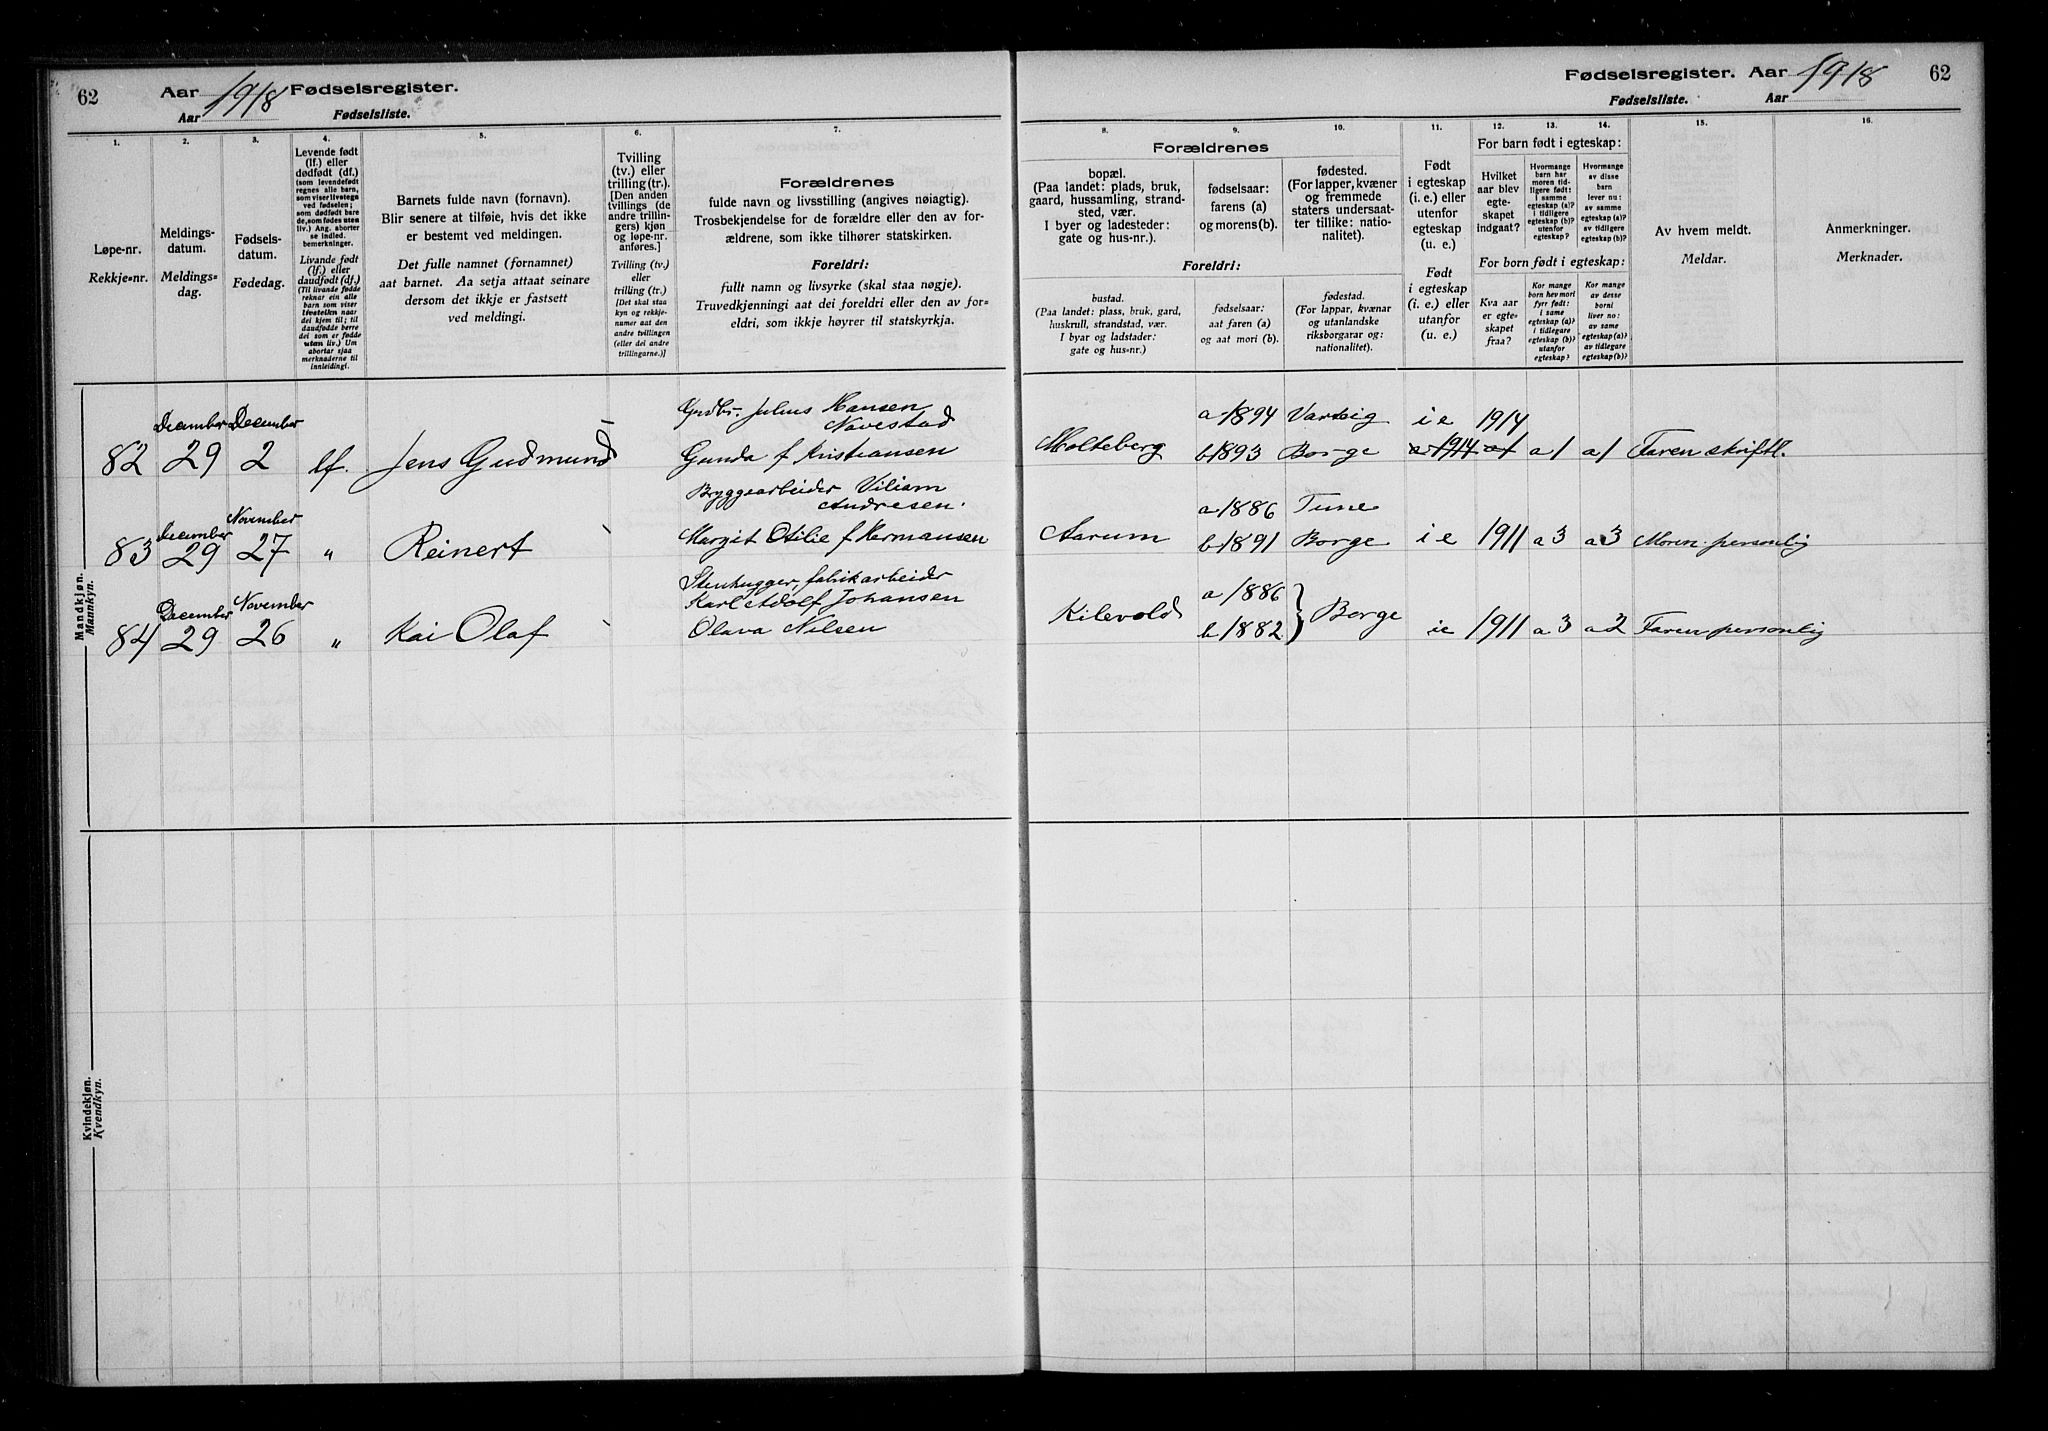 62 Aar 1918 Fødselsregister.
Aar Fødselsliste.
1. 2. 3. 4. 5. 6. 7.
Løpe-nr.
Rekkje-nr.
Meldings-
datum.
Meldings-
dag.
Fødsels-
datum.
Fødedag.
Levende født
(lf.) eller
dødfødt (df.)
(som levendefødt
regnes alle barn,
som viser livstegn
ved fødselen;
som dødfødt bare
de, som fødes uten
liv.) Ang. aborter
se indled.
bemerkninger.
Livande født
(lf.) eller
daudfødt (df.)
(Til livande fødde
reknar ein alle
barn som viser
livsteikn naar
dei kjem til; til
daudfødde berre
dei som er fødde
uten liv.) Um
abortar sjaa
merknaderne til
innleidingi.
Barnets fulde navn (fornavn).
Blir senere at tilføie, hvis det ikke
er bestemt ved meldingen.
Det fulle namnet (fornamnet)
aat barnet. Aa setja attaat seinare
dersom det ikkje er fastsett
ved meldingi.
Tvilling
(tv.) eller
trilling (tr.).
[Den anden
tvillings (de
andre trillin-
gers) kjøn
og løpe-nr.
anføres.]
Tvilling (tv.)
eller
trilling (tr.)
[Det skal staa
kyn og rekkje-
numer aat den
andre tvillingen
(eller dei andre
trillingarne.)]
Forældrenes
fulde navn og livsstilling (angives nøiagtig).
Trosbekjendelse for de forældre eller den av for-
ældrene, som ikke tilhører statskirken.
Foreldri:
fullt namn og livsyrke (skal staa nøgje).
Truvedkjenningi aat dei foreldri eller den av for-
eldri, som ikkje høyrer til statskyrkja.
Mandkjøn.
Mannkyn.
82 December 29 December 2 lf. Jens Gudmund
Gudbr. Julius Hansen
Navestad
Gunda f Kristiansen
83 December 29 November 27 " Reinert
Bryggearbeider Viliam
Andresen.
Margit Otilie f Hermansen
84 December 29 November 26 " Kai Olaf
Stenhugger, fabrikarbeider
Karl Adolf Johansen
Olava Nilsen
Kvindekjøn.
Kvendkyn.
Fødselsregister. Aar 1918 62
Fødselsliste. Aar
8. 9. 10. 11. 12. 13. 14. 15. 16.
Forældrenes
bopæl.
(Paa landet: plads, bruk,
gaard, hussamling, strand-
sted, vær.
I byer og ladesteder:
gate og hus-nr.).
fødselsaar:
farens (a)
og morens (b).
fødested.
(For lapper, kvæner
og fremmede
staters undersaat-
ter tillike: natio-
nalitet).
Foreldri:
bustad.
(Paa landet: plass, bruk, gard,
huskrull, strandstad, vær.
I byar og ladstader:
gate og hus-nr.)
fødselsaar:
aat faren (a)
og aat mori (b).
fødestad.
(For lappar, kvænar
og utanlandske
riksborgarar og:
nationalitet).
Født
i egteskap
(i. e.) eller
utenfor
egteskap
(u. e.)
Født
i egteskap
(i. e.) eller
utanfor
(u. e.)
For barn født i egteskap:
Hvilket
aar blev
egte-
skapet
indgaat?
Hvormange
barn har
moren tid-
ligere født:
i samme
egteskap (a)?
i tidligere
egteskap (b)?
utenfor
egteskap?
Hvormange
av disse
barn
lever nu:
av samme
egteskap (a)?
av tidligere
egteskap (b)?
For born født i egteskap:
Kva aar
er egte-
skapet
fraa?
Kor mange
born hev mori
fyrr født:
i same
egteskap (a)?
i tidlegare
egteskap (b)?
utanfor
egteskap?
Kor mange
av desse
borni
liver no:
av same
egteskap (a)?
av tidlegare
egteskap (b)?
Av hvem meldt.
Meldar.
Anmerkninger.
Merknader.
Molteberg a 1894 Varteig i e 1914
b 1893 Borge a 1914 a1 a 1 a 1 Faren skriftl.
Aarum a 1886 Tune
b 1891 Borge i e 1911 a 3 a 3 Moren personlig
Kilevold a 1886 } Borge
b 1882 ie 1911 a 3 a 2 Faren personlig